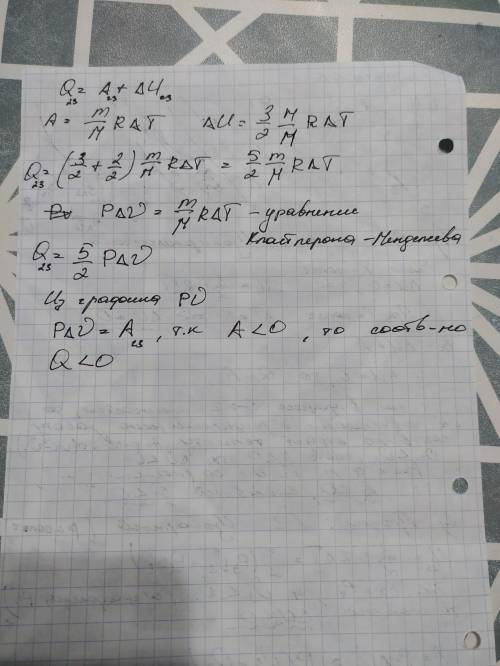 Q₂₃ = A₂₃ + ΔU₂₃
A = m/M RΔT ΔU = 3/2 m/M RΔT
Q₂₃ = (3/2 + 2/2) m/M RΔT = 5/2 m/M RΔT
PΔV = m/M RΔT – уравнение
Клайперона – Менделеева
Q₂₃ = 5/2 PΔV
Из графика PV
PΔV = A₂₃, т.к A < 0, то соотв-но
Q < 0